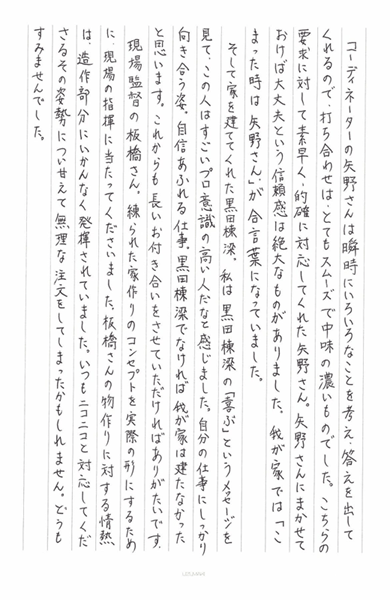 コーディネーターの矢野さんは瞬時にいろいろなことを考え、答えを出して
くれるので、打ち合わせは、とてもスムーズで中味の濃いものでした。こちらの
要求に対して素早く、的確に対応してくれた矢野さん。矢野さんにまかせて
おけば大丈夫という信頼感は絶大なものがありました。我が家では「こ
まった時は矢野さん」が合言葉になっていました。
そして家を建ててくれた黒田棟梁。私は黒田棟梁の「喜ぶ」というメッセージを
見て、この人はすごいプロ意識の高い人だなと感じました。自分の仕事にしっかり
向き合う姿。自信あふれる仕事。黒田棟梁でなければ我が家は建たなかった
と思います。これからも長いお付き合いをさせていただければありがたいです。
現場監督の板橋さん。練られた家作りのコンセプトを実際の形にするため
に、現場の指揮に当たってくださいました。板橋さんの物作りに対する情熱
は、造作部分にいかんなく発揮されていました。いつもニコニコと対応してくだ
さるその姿勢につい甘えて無理な注文をしてしまったかもしれません。どうも
すみませんでした。